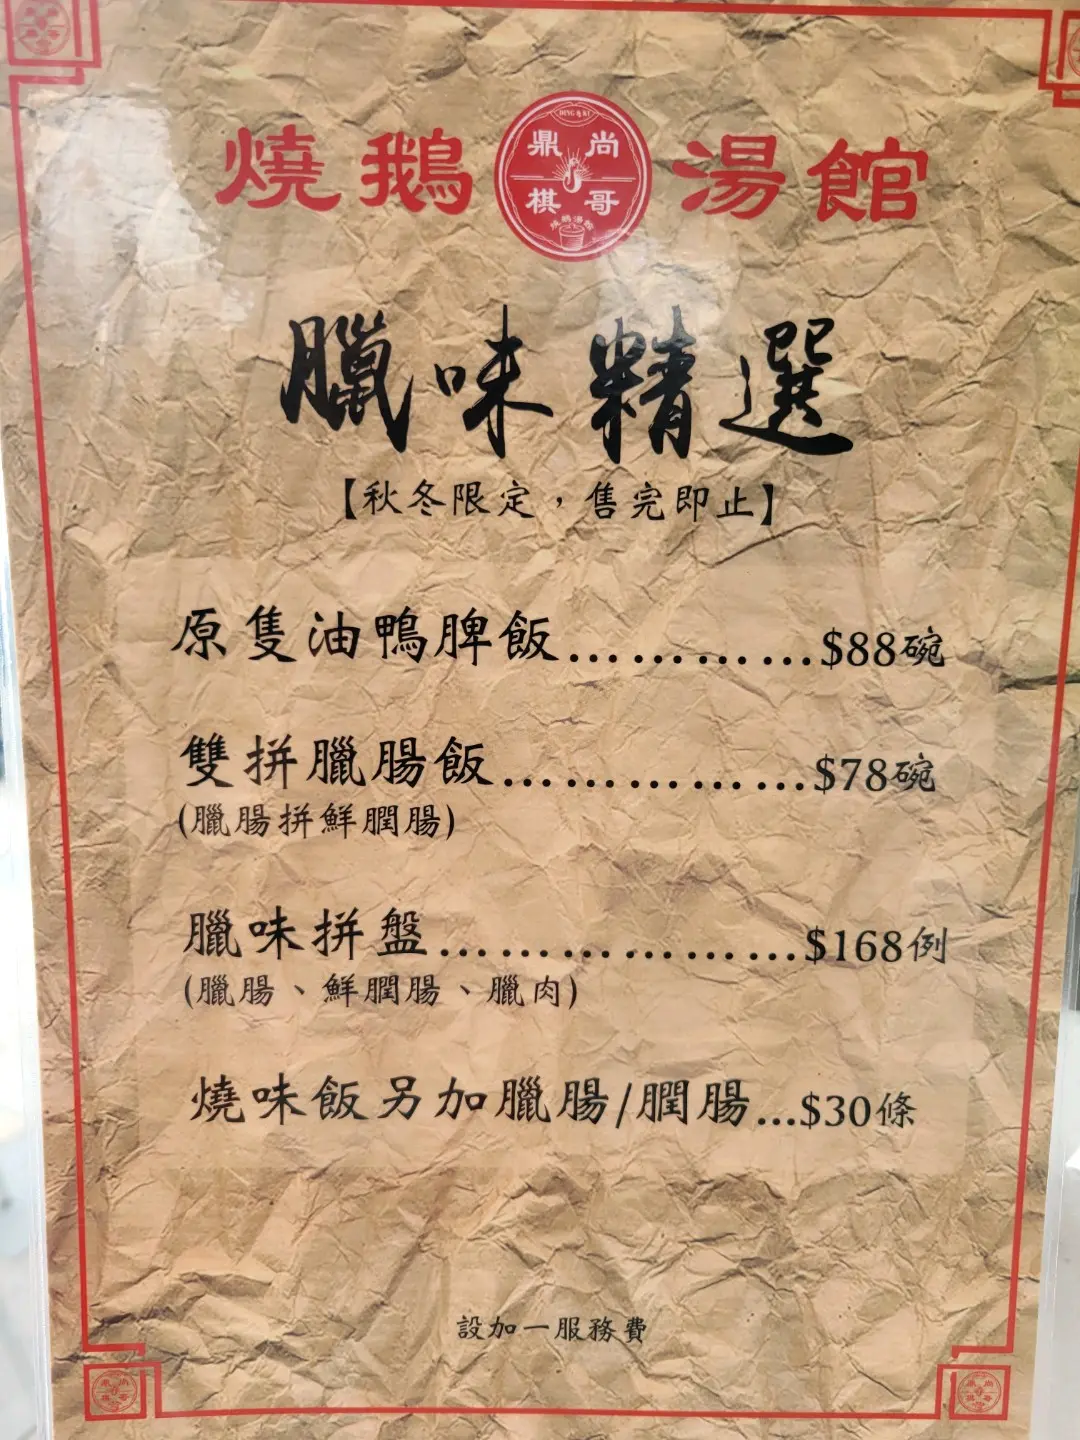 燒鵝 鼎尚棋哥 湯館
臘味精選
【秋冬限定，售完即止】
原隻油鴨脾飯............$88碗
雙拼臘腸飯...............$78碗
(臘腸拼鮮膶腸)
臘味拼盤..................$168例
(臘腸、鮮膶腸、臘肉)
燒味飯另加臘腸/膶腸...$30條
設加一服務費